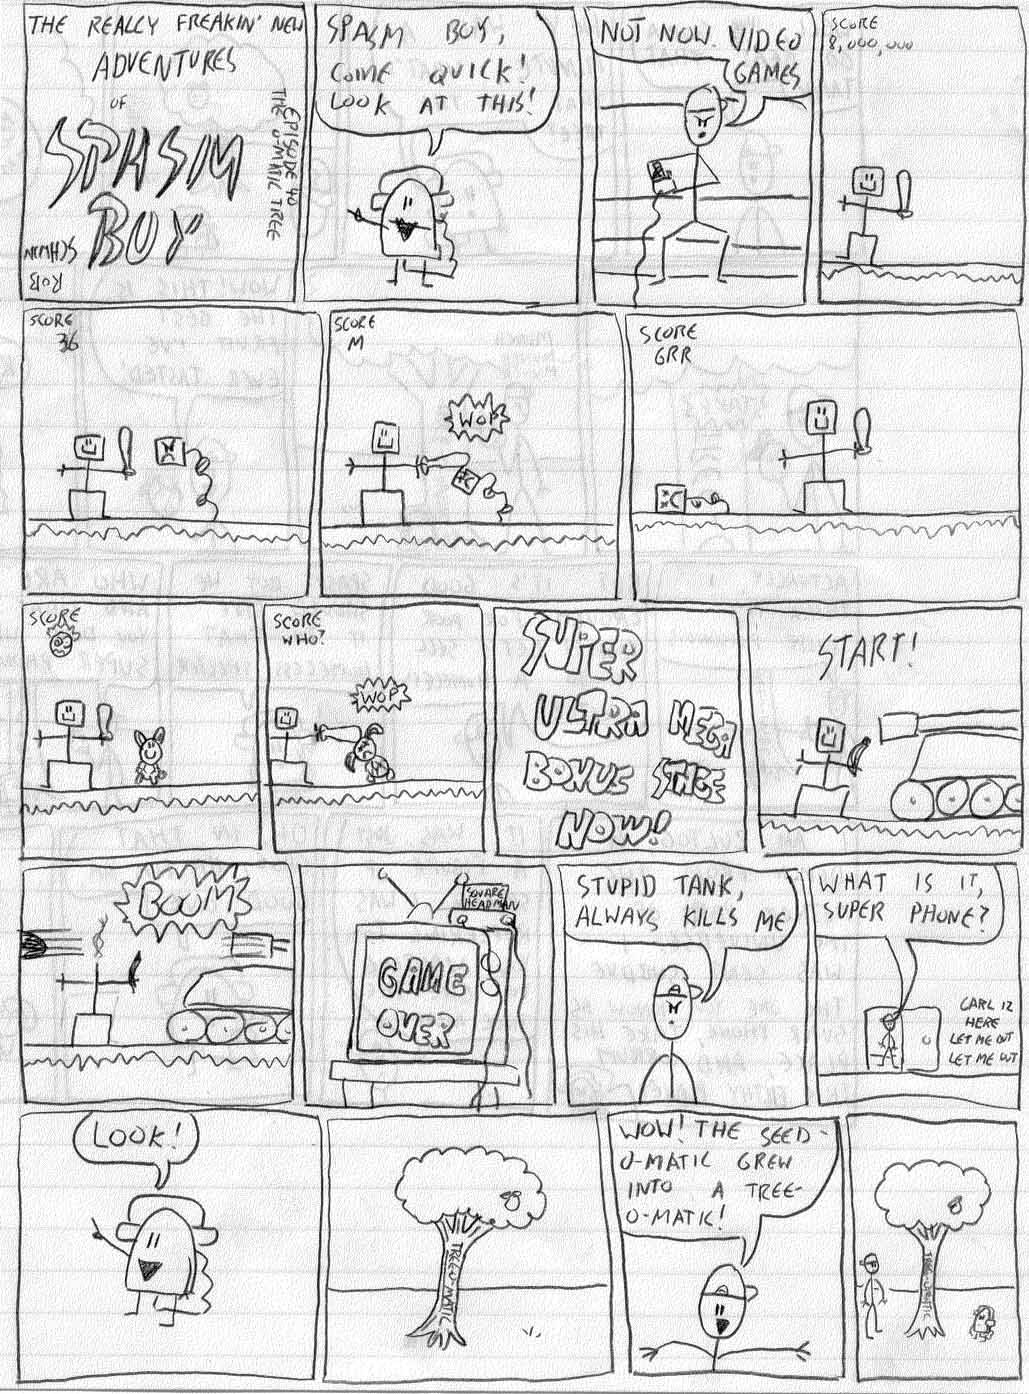 THE REALLY FREAKIN' NEW
ADVENTURES
OF
SPASM
BOY
EPISODE 40
THE O-MATIC TREE
ROB
SCHWIN
SPASM BOY,
COME QUICK!
LOOK AT THIS!
NOT NOW. VIDEO
GAMES
SCORE
8,000,000
SCORE
36
SCORE
M
WOP
SCORE
GRR
SCORE
SCORE
WHO?
WOP
SUPER
ULTRA MEGA
BONUS STAGE
NOW!
START!
BOOM
SQUARE
HEAD MAN
GAME
OVER
STUPID TANK,
ALWAYS KILLS ME
WHAT IS IT,
SUPER PHONE?
CARL IZ
HERE
LET ME OUT
LET ME OUT
LOOK!
TREE-O-MATIC
WOW! THE SEED-
O-MATIC GREW
INTO A TREE-
O-MATIC!
TREE-O-MATIC